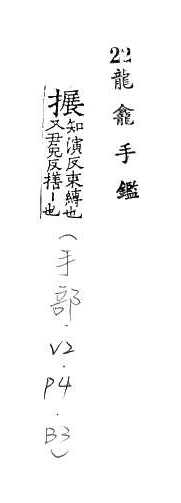 22龍龕手鑑
搌知演反束縛也
又君免反搘丨也
(手部.V2.P4.B3)